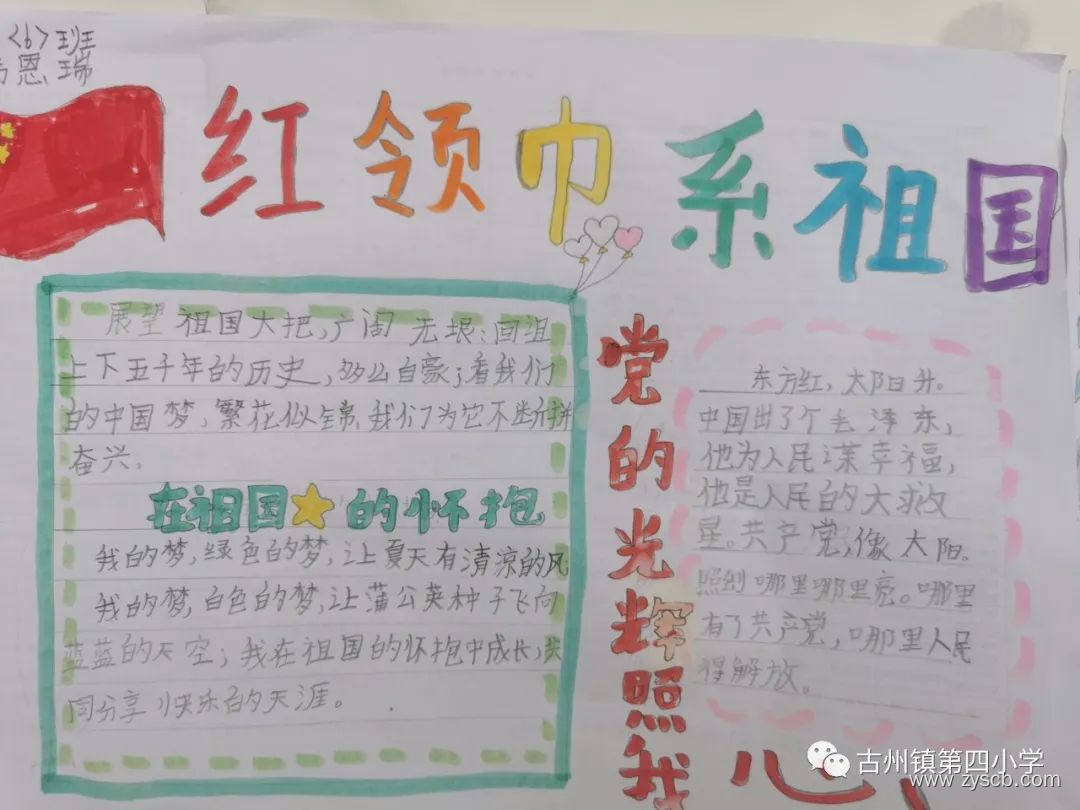 <6>班
恩瑞
红领巾系祖国
展望祖国大把,广阔无垠;回沮
上下五千年的历史,多么自豪;看我们
的中国梦,繁花似锦.我们为它不断拼
奋兴。
在祖国的怀抱
我的梦,绿色的梦,让夏天有清凉的风
我的梦,白色的梦,让蒲公英种子飞向
蓝蓝的天空;我在祖国的怀抱中成长,共
同分享快乐的天涯。
党的光辉照我心
东方红,太阳日升。
中国出了个毛泽东,
他为人民谋幸福,
他是人民的大救
星。共产党,像太阳.
照到哪里哪里亮。哪里
有了共产党,哪里人民
得解放。
古州镇第四小学
www.zyscb.com